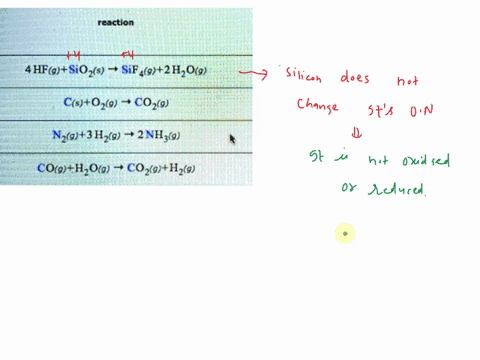 reaction
+4 +4
4 HF(g)+SiO₂(s) → SiF₄(g)+2 H₂O(g)
C(s)+O₂(g) → CO₂(g)
N₂(g)+3 H₂(g) → 2 NH₃(g)
CO(g)+H₂O(g) → CO₂(g)+H₂(g)
→ Silicon does not
change It's O.N
⇓
It is not oxidised
or reduced.